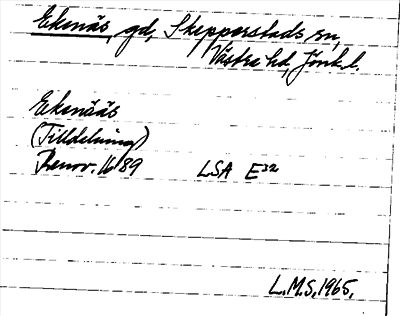 Ekenäs, gd, Skepperstads sn,
Västra hd, Jönk.l.
Ekenääs
(Tilldelning)
Renov. 1689 LSA E32
L.M.S. 1965.